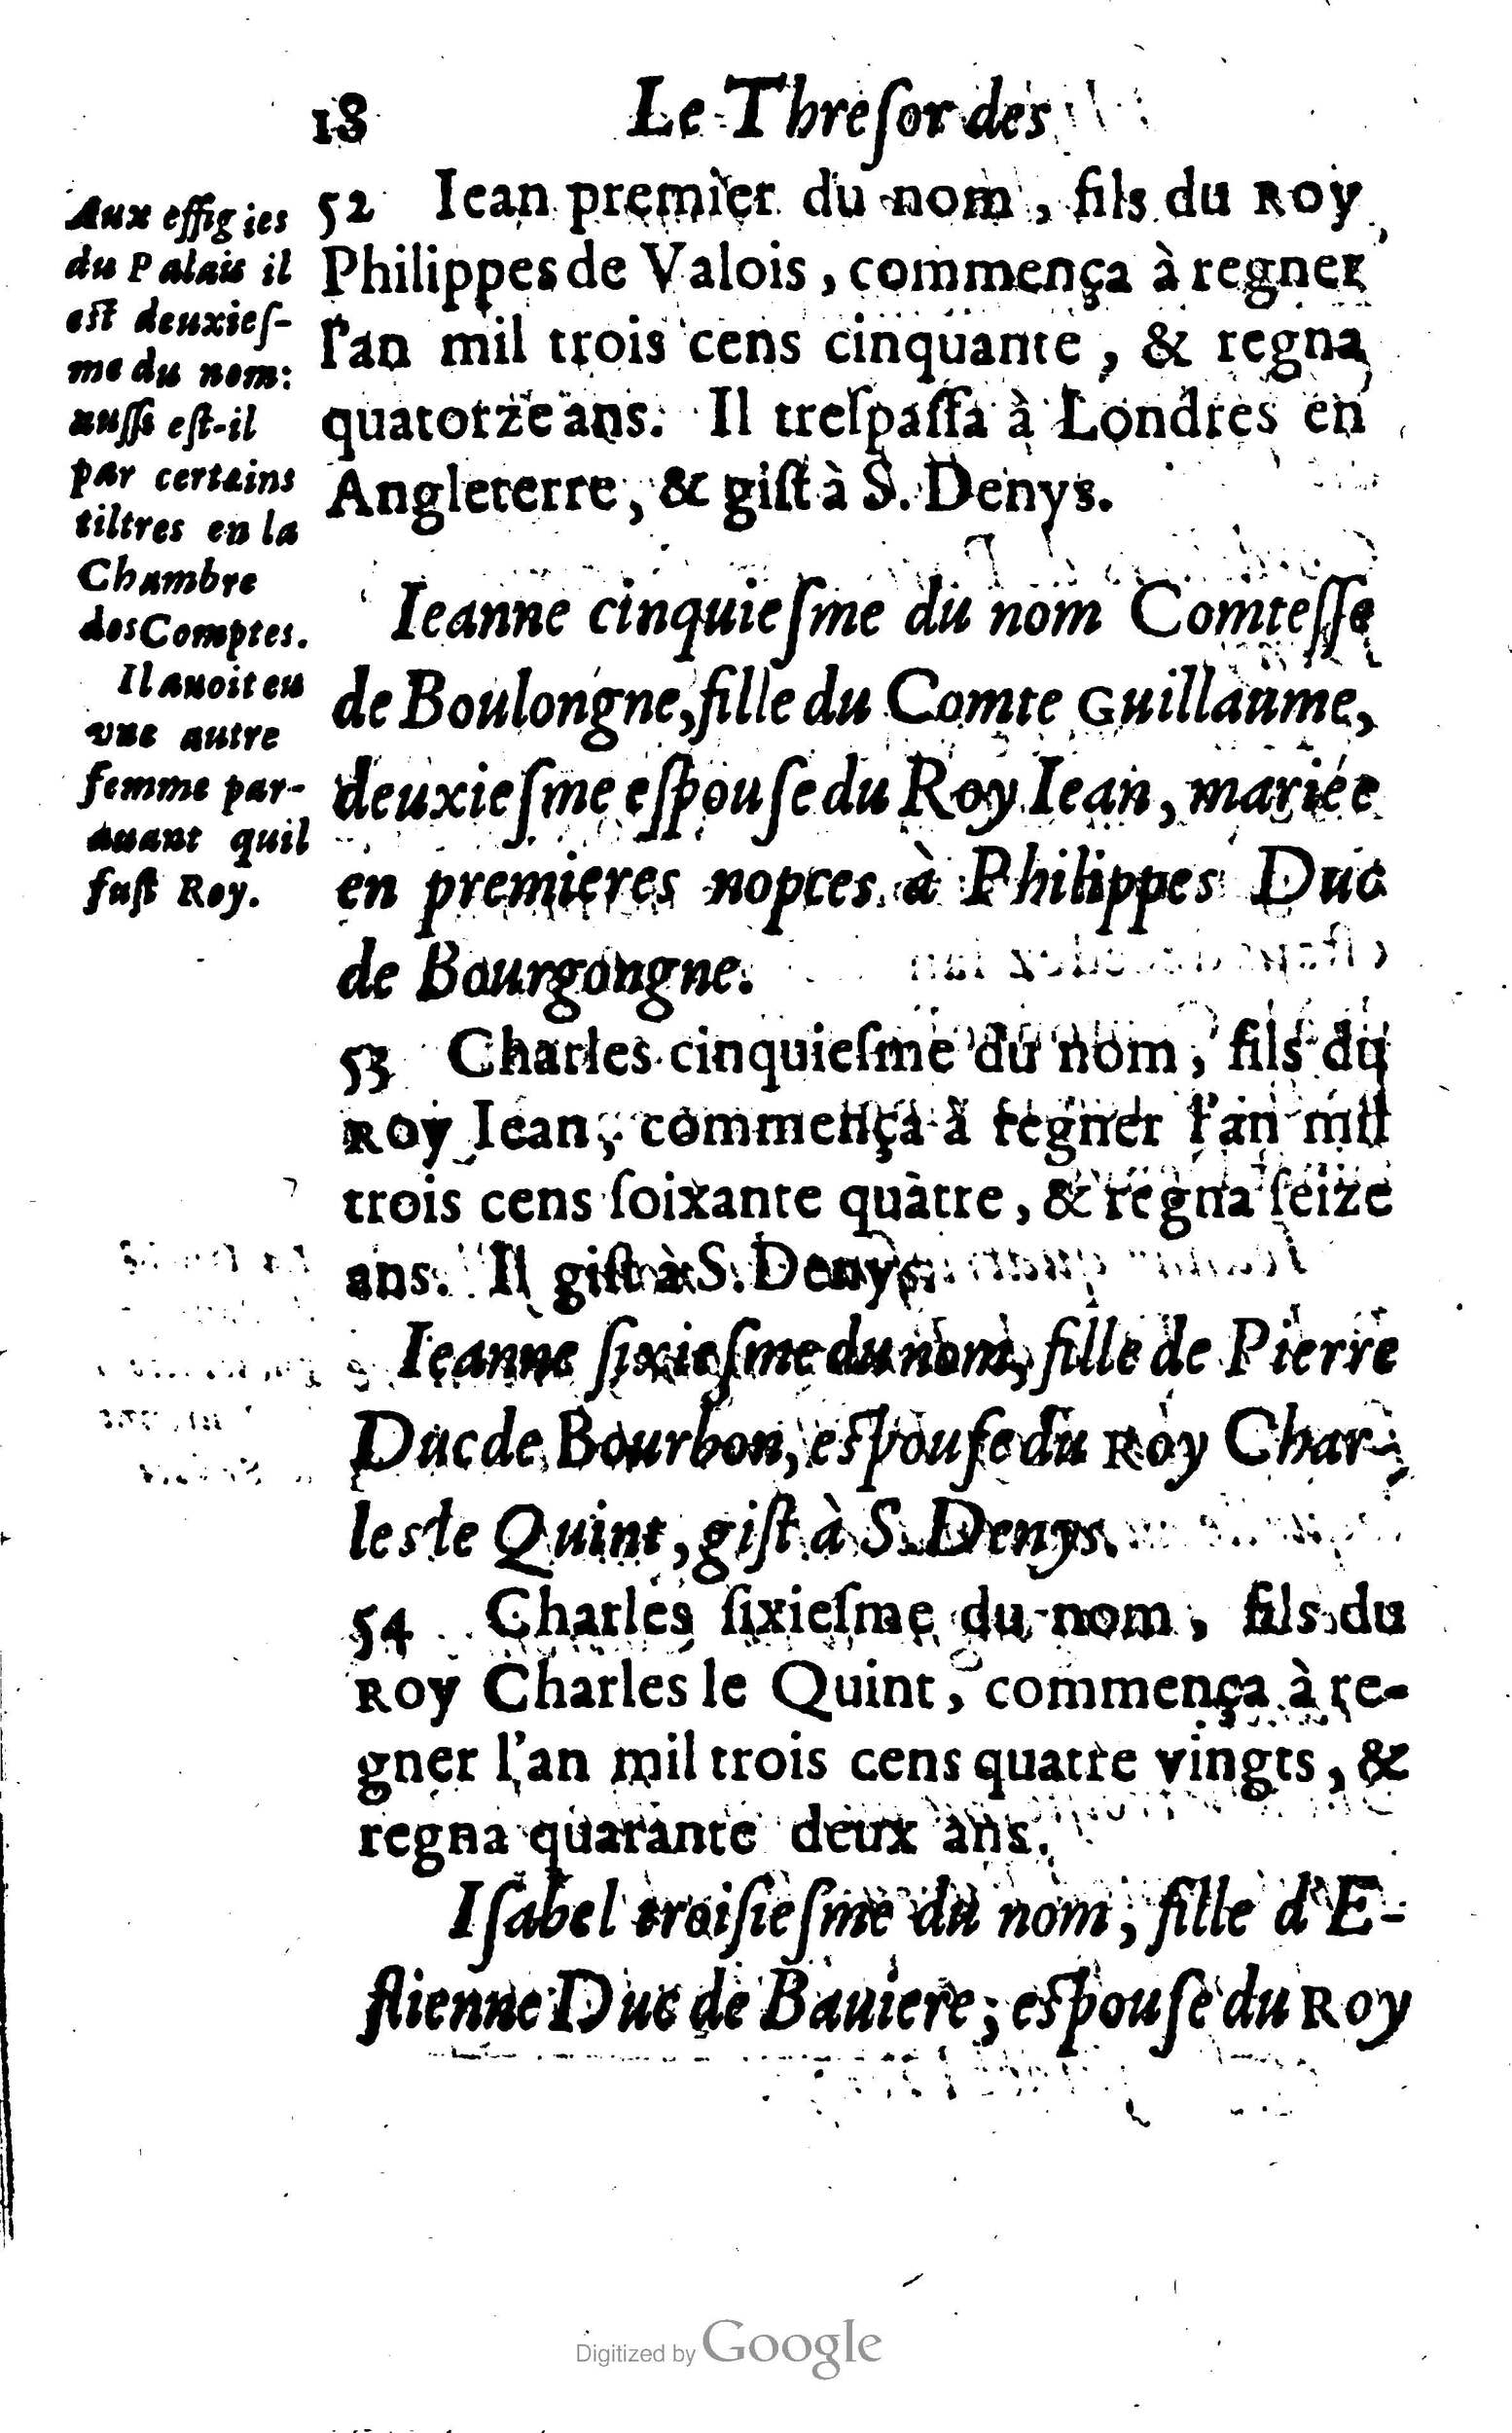 18 Le Threſor des
Aux effigies
du Palais il
eſt deuxieſ-
me du nom:
auſſi eſt-il
par certains
tiltres en la
Chambre
des Comptes.
Il auoit eu
vne autre
femme par-
auant quil
fuſt Roy.
52 Iean premier du nom, fils du Roy
Philippes de Valois, commença à regner
l'an mil trois cens cinquante, & regna
quatorze ans. Il treſpaſſa à Londres en
Angleterre, & giſt à S. Denys.
Ieanne cinquieſme du nom Comteſſe
de Boulongne, fille du Comte Guillaume,
deuxieſme eſpouſe du Roy Iean, mariée
en premieres nopces à Philippes Duc
de Bourgongne.
53 Charles cinquieſme du nom, fils du
Roy Iean, commença à regner l'an mil
trois cens ſoixante quatre, & regna ſeize
ans. Il giſt à S. Denys.
Ieanne ſixieſme du nom, fille de Pierre
Duc de Bourbon, eſpouſe du Roy Char-
les le Quint, giſt à S. Denys.
54 Charles ſixieſme du nom, fils du
Roy Charles le Quint, commença à re-
gner l'an mil trois cens quatre vingts, &
regna quarante deux ans.
Iſabel troiſieſme du nom, fille d'E-
ſtienne Duc de Bauiere, eſpouſe du Roy
Digitized by Google